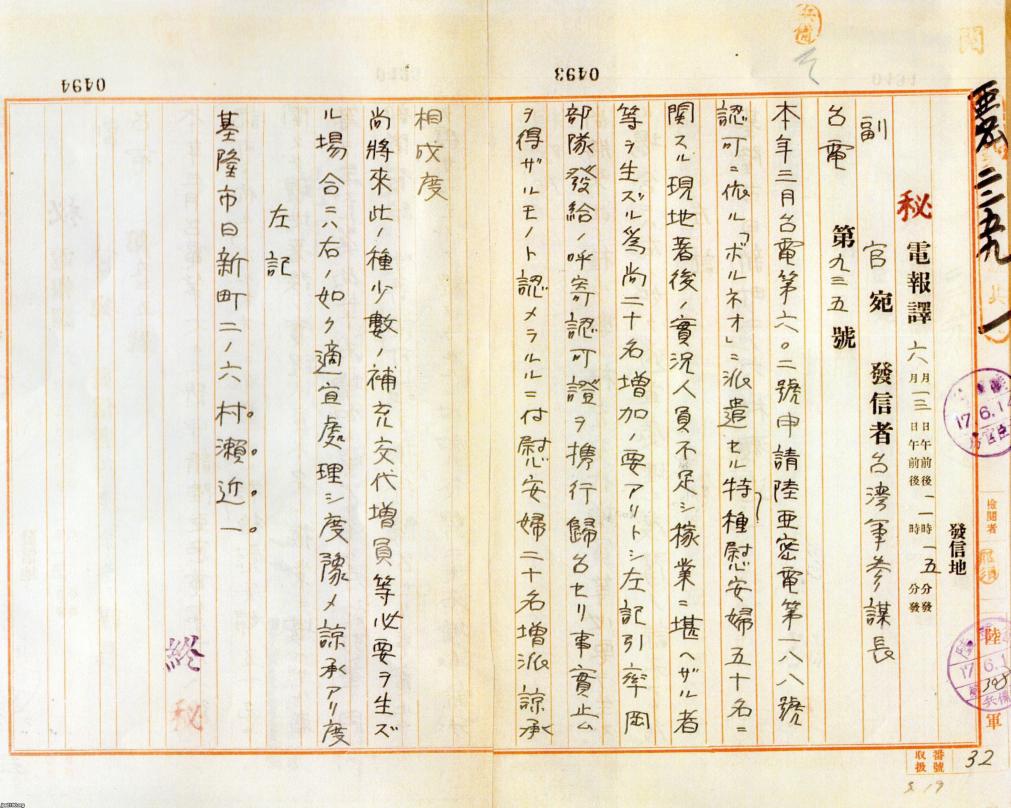 亜密二二五九
發信地
秘 電報譯 六月一三日午前後一一時一五分發
副 官 宛 發信者 台湾軍参謀長
台電 第九三五號
本年三月台電第六〇二號申請陸亜密電第一八八號
認可ニ依ル「ボルネオ」ニ派遣セル特種慰安婦五十名ニ
関スル現地著後ノ實況人員不足シ稼業ニ堪ヘザル者
等ヲ生ズル為尚二十名増加ノ要アリトシ左記引率岡
部隊發給ノ呼寄認可證ヲ携行歸台セリ事實止ム
ヲ得ザルモノト認メラルルニ付慰安婦二十名増派諒承
相成度
尚將来此ノ種少數ノ補充交代増員等必要ヲ生ズ
ル場合ニハ右ノ如ク適宜處理シ度豫メ諒承アリ度
左記
基隆市日新町二ノ六村瀬近一
終
秘
0493
0494
檢閲者
陸
軍
17.6.14
番號
取扱
32